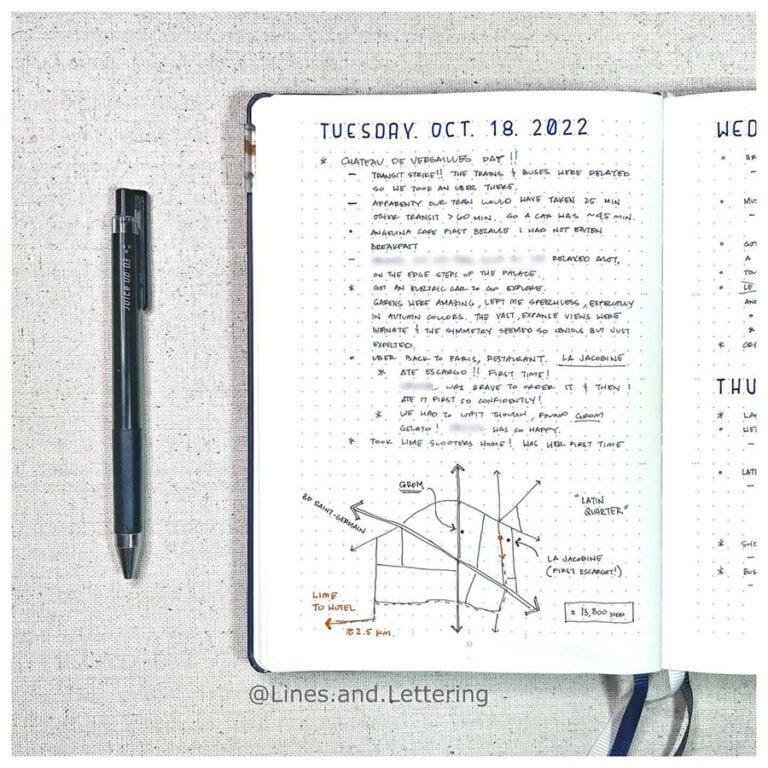 TUESDAY. OCT. 18. 2022
* CHATEAU DE VERSAILLES DAY !!
— TRANSIT STRIKE!! THE TRAINS & BUSES WERE DELAYED
SO WE TOOK AN UBER THERE.
— APPARENTLY OUR TRAIN WOULD HAVE TAKEN 25 MIN
OTHER TRANSIT > 60 MIN. SO A CAR WAS ~45 MIN.
• ANGELINA CAFE FIRST BECAUSE I HAD NOT EATEN
BREAKFAST
— RELAXED ALOT,
ON THE EDGE STEPS OF THE PALACE.
* GOT AN ELECTRIC CAR TO GO EXPLORE.
GARENS WERE AMAZING, LEFT ME SPEECHLESS, ESPECIALLY
IN AUTUMN COLLORS. THE VAST, EXPANSE VIEWS WERE
INFINATE & THE SYMMETRY SEEMED SO OBVIOUS BUT JUST
EXPECTED.
• UBER BACK TO PARIS, RESTAURANT. LA JACOBINE
* ATE ESCARGO !! FIRST TIME!
L WAS BRAVE TO ORDER IT & THEN I
ATE IT FIRST SO CONFIDENTLY!
* WE HAD TO WAIT THOUGH, FOUND GROM
GELATO! WAS SO HAPPY.
* TOOK LIME SCOOTERS HOME! WAS HER FIRST TIME
GROM
BD SAINT-GERMAIN
"LATIN
QUARTER"
LA JACOBINE
(FIRST ESCARGOT!)
LIME
TO HOTEL
≈2.5 KM.
≈ 13,800 STEPS
52
WED
THU
LE
LATI
JUICE UP 03
@Lines.and.Lettering